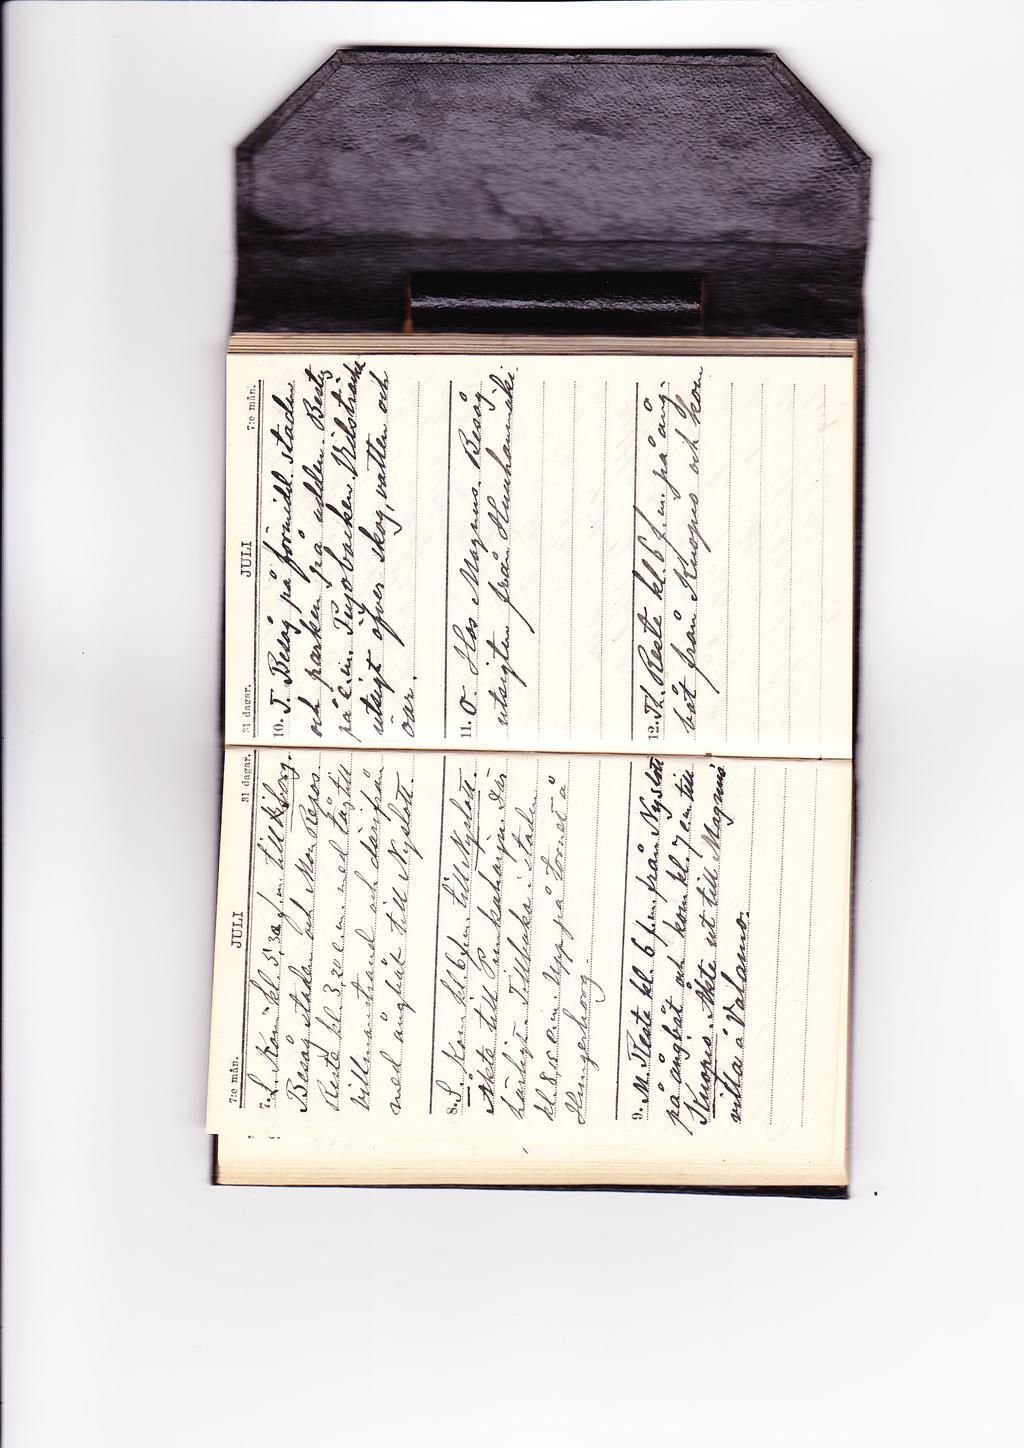 7:e mån. JULI 31 dagar.
7. L. Kom kl. 5,30 f.m. till Viborg.
Besåg staden och Mon Repos.
Reste kl. 3,20 e.m. med tåg till
Villmanstrand och därifrån
med ångbåt till Nyslott.
8. S. Kom kl. 6 f.m. till Nyslott.
Åkte till Punkaharju. Där
härligt. Tillbaka i staden
kl. 8,15 e.m. Upp på tornet å
Hungerborg.
9. M. Reste kl. 6 f.m. från Nyslott
på ångbåt och kom kl. 7 e.m. till
Kuopio. Åkte ut till Magnus'
villa å Valamo.
31 dagar. JULI 7:e mån.
10. T. Besåg på förmidd. staden
och parken på udden. Besteg
på e.m. Puijobacken. Vidsträckt
utsigt öfver skog, vatten och
öar.
11. O. Hos Magnus. Besåg
utsigten från
12. Th. Reste kl. 6 f.m. på ång-
båt från Kuopio och kom